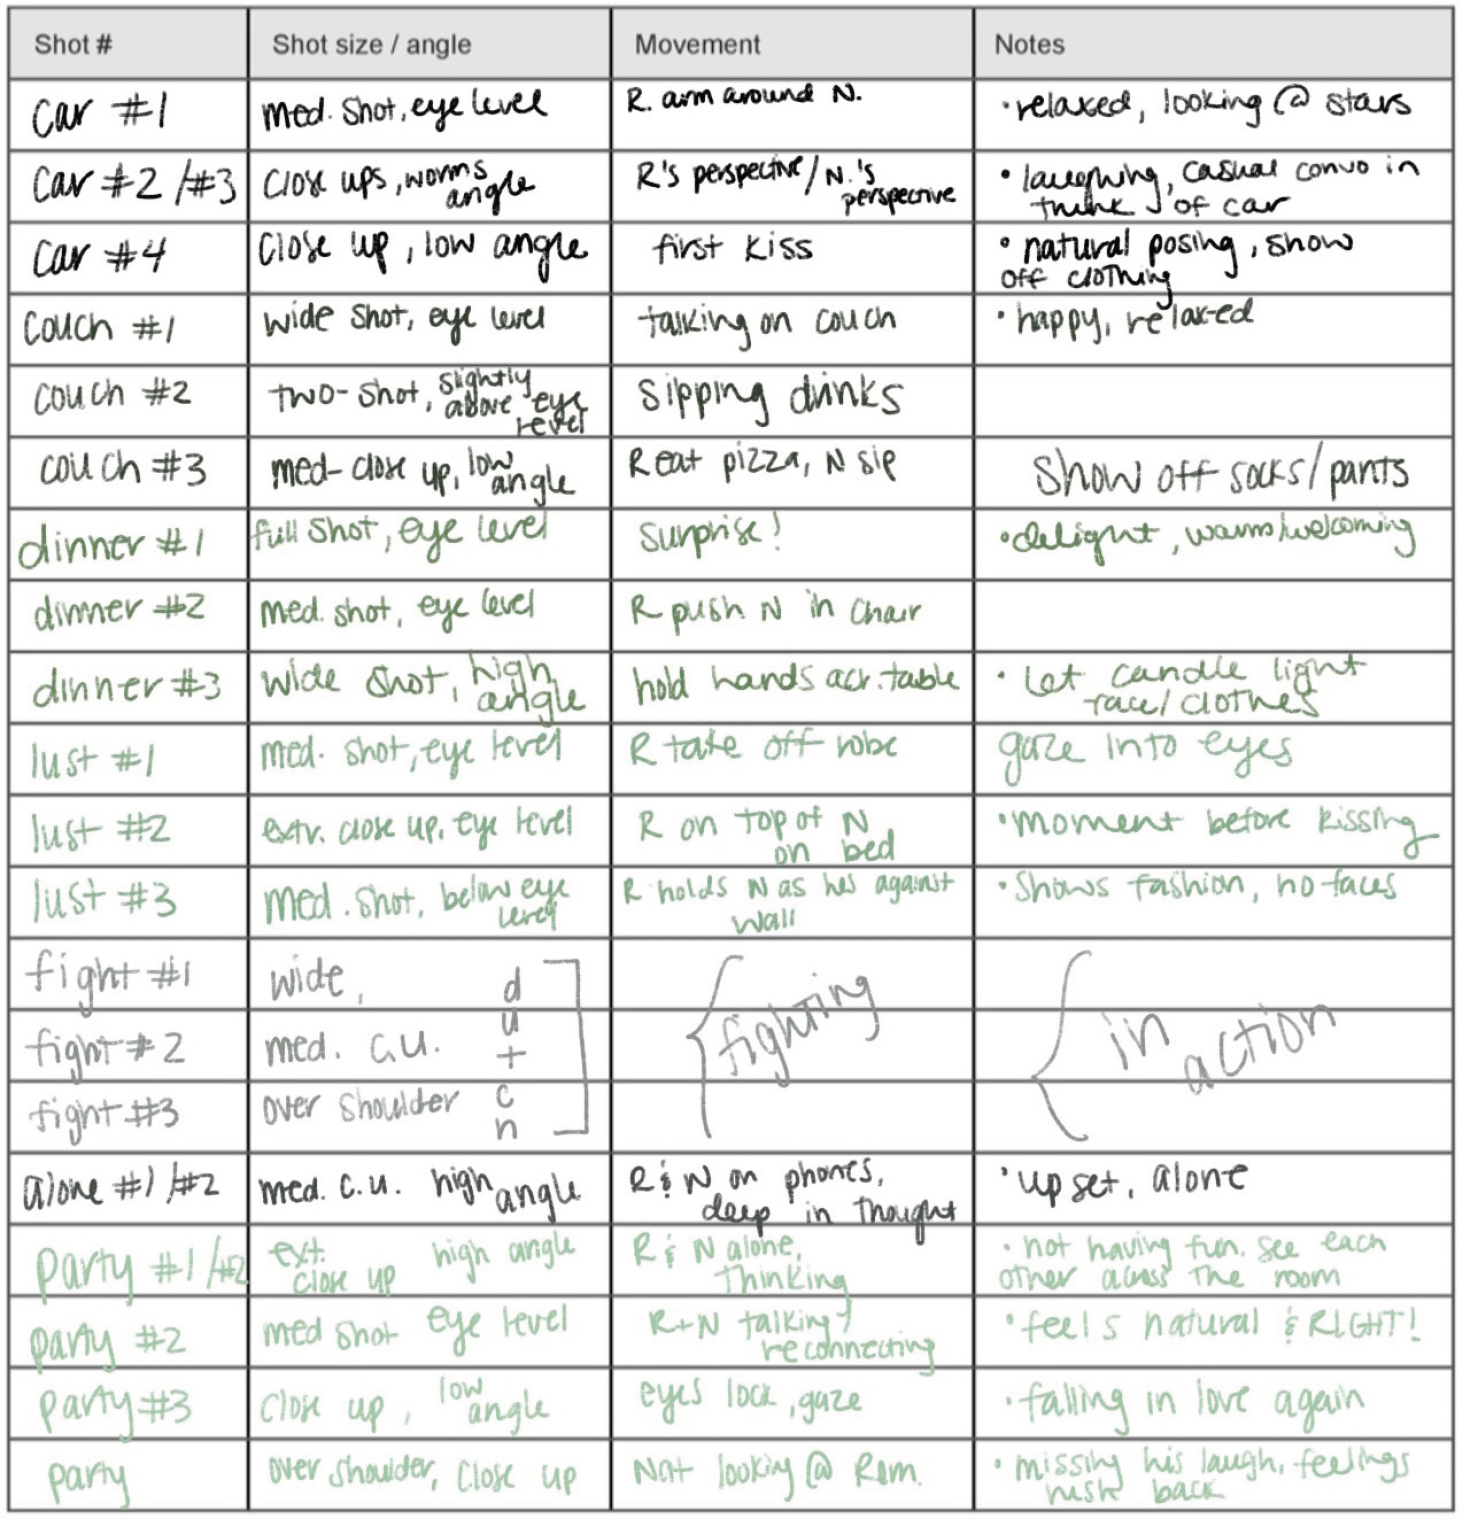 Shot # Shot size / angle Movement Notes
car #1 med. shot, eye level R. arm around N. • relaxed, looking @ stars
car #2 /#3 close ups, worms R's perspective/N.'s • laughing, casual convo in
angle perspective trunk of car
car #4 close up, low angle first kiss • natural posing, show
off clothing
couch #1 wide shot, eye level talking on couch • happy, relaxed
couch #2 two-shot, slightly sipping drinks
above eye
level
couch #3 med-close up, low R eat pizza, N sip Show off socks/pants
angle
dinner #1 full shot, eye level surprise! • delight, warm/welcoming
dinner #2 med. shot, eye level R push N in chair
dinner #3 wide shot, high hold hands acr. table • Let candle light
angle face/clothes
lust #1 med. shot, eye level R take off robe gaze into eyes
lust #2 extr. close up, eye level R on top of N • moment before kissing
on bed
lust #3 med. shot, below eye R holds N as hes against • Shows fashion, no faces
level wall
fight #1 wide, dutch fighting in action
fight #2 med. c.u.
fight #3 over shoulder
alone #1 /#2 med. c.u. high angle R & N on phones, • upset, alone
deep in thought
party #1 /#2 ext. high angle R & N alone, • not having fun. see each
close up thinking other across the room
party #2 med shot eye level R+N talking/ • feels natural & RIGHT!
reconnecting
party #3 close up, low angle eyes lock, gaze • falling in love again
party over shoulder, close up Nat looking @ Rom. • missing his laugh, feelings
rush back